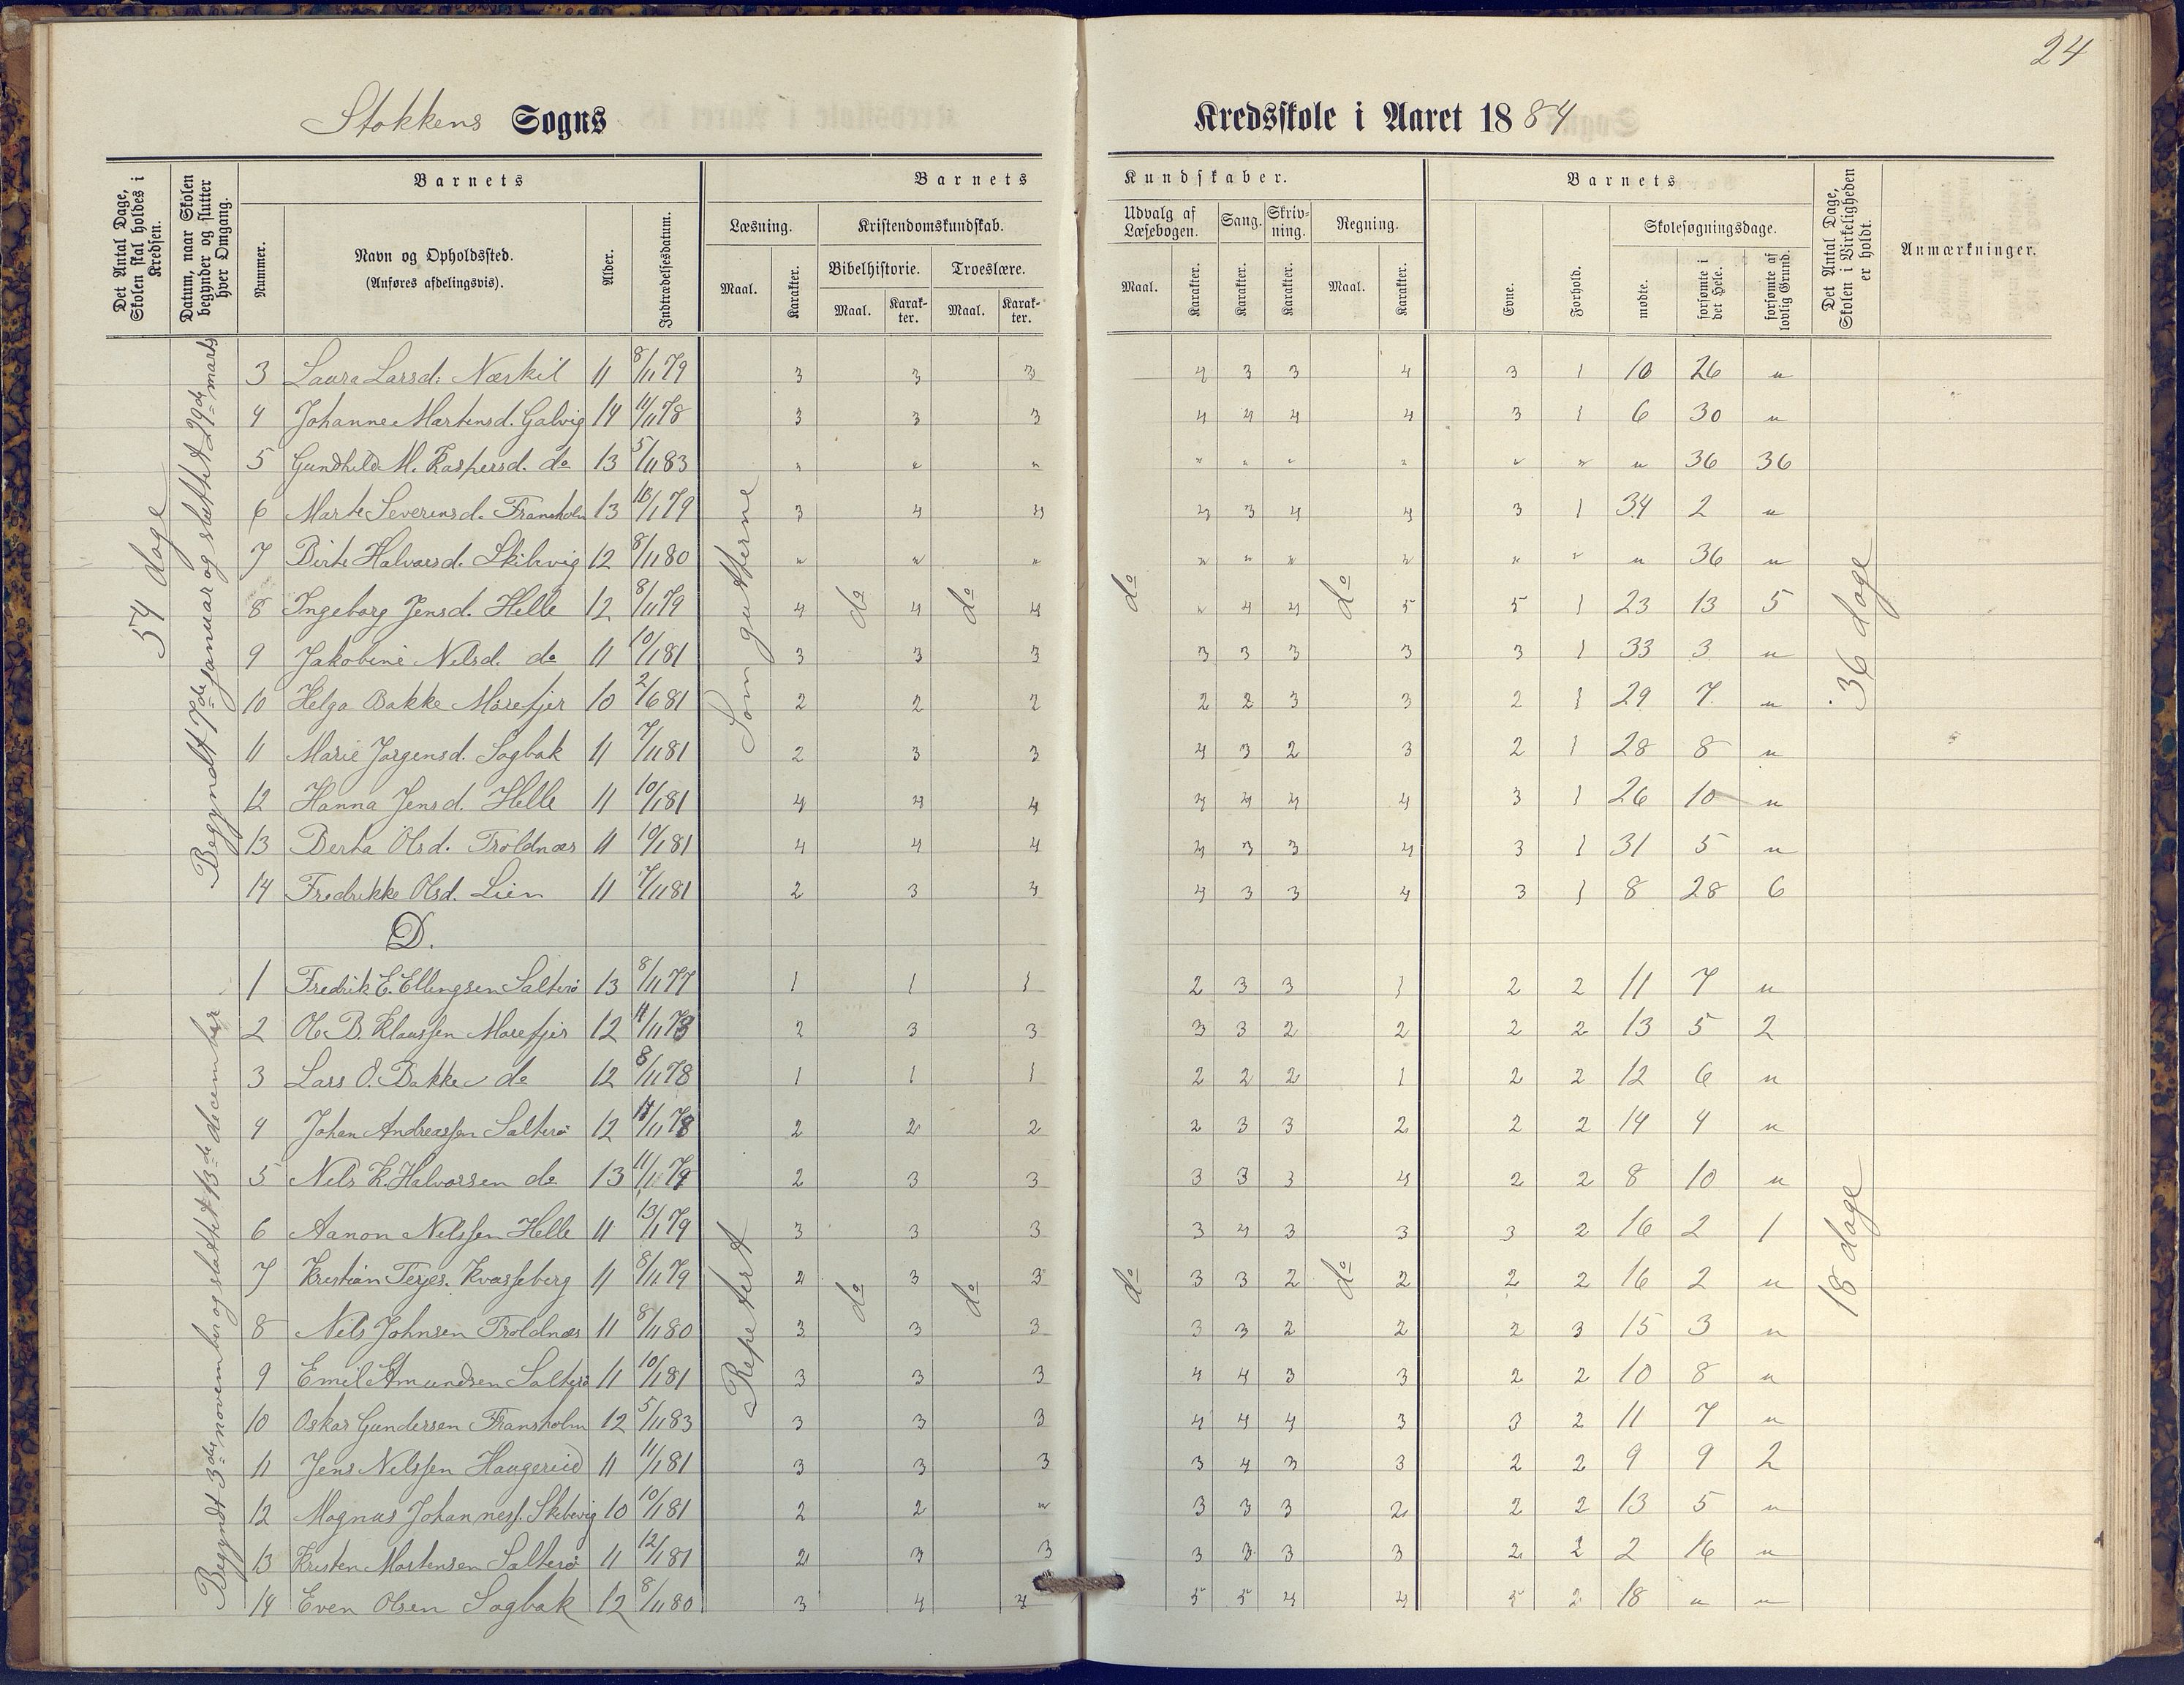 24
Stokkens Sogns Kredsskole i Aaret 1884
Det Antal Dage, Skolen skal holdes i Kredsen.
Datum, naar Skolen begynder og slutter hver Omgang.
Barnets
Nummer.
Navn og Opholdssted.
(Anføres afdelingsvis).
Alder.
Indtrædelsesdatum.
Barnets Kundskaber.
Læsning.
Maal.
Karakter.
Kristendomskundskab.
Bibelhistorie.
Maal.
Karakter.
Troeslære.
Maal.
Karakter.
Udvalg af Læsebogen.
Maal.
Karakter.
Sang.
Karakter.
Skrivning.
Karakter.
Regning.
Maal.
Karakter.
Barnets
Evne.
Forhold.
Skolesøgningsdage.
mødte.
forsømte i det Hele.
forsømte af lovlig Grund.
Det Antal Dage, Skolen i Virkeligheden er holdt.
Anmærkninger.
54 dage
Begyndt 7de januar og sluttet 29de marts
Som gutterne do do do do
36 dage
3 Laura Larsd. Næskil 11 8/11 79 3 3 3 4 3 3 4 3 1 10 26 "
4 Johanne Martensd. Galvig 14 11/11 78 3 3 3 4 4 4 4 3 1 6 30 "
5 Gundhild M. Kaspersd. do 13 5/11 83 " " " " " " " " " " 36 36
6 Marte Severinsd. Fransholm 13 10/1 79 3 4 4 4 3 4 4 3 1 34 2 "
7 Birte Halvorsd. Skibvig 12 8/11 80 " " " " " " " " " " 36 "
8 Ingeborg Jensd. Helle 12 8/11 79 4 4 4 " 4 4 5 5 1 23 13 5
9 Jakobine Nilsd. do 11 10/1 81 3 3 3 3 3 3 3 3 1 33 3 "
10 Helga Bakke Morefjer 10 2/6 81 2 2 2 2 2 3 3 2 1 29 7 "
11 Marie Jørgensd. Sagbak 11 7/11 81 2 3 3 4 3 2 3 2 1 28 8 "
12 Hanna Jensd. Helle 11 10/1 81 4 4 4 4 4 4 4 3 1 26 10 "
13 Berta Olsd. Troldnæs 11 10/1 81 4 4 4 4 3 3 4 3 1 31 5 "
14 Fredrikke Olsd. Lien 11 7/11 81 2 3 4 4 3 3 4 3 1 8 28 6
D.
Begyndt 3die november og sluttet 13de december
Repetert do do do do
18 dage
1 Fredrik E. Ellingsen Salterø 13 8/11 77 1 1 1 2 3 3 1 2 2 11 7 "
2 Ole B. Klaussen Morefjer 12 11/11 78 2 3 3 3 3 2 2 2 2 13 5 2
3 Lars O. Bakke do 12 8/11 78 1 1 1 2 2 2 1 2 2 12 6 "
4 Johan Andreassen Salterø 12 11/11 78 2 2 2 2 3 3 2 2 2 14 4 "
5 Nils K. Halvorsen do 13 11/11 79 2 3 3 3 3 3 4 2 2 8 10 "
6 Aanon Nilssen Helle 11 13/1 79 3 3 3 3 4 3 3 3 2 16 2 1
7 Kristian Terjes. Kvasseberg 11 8/11 79 2 3 3 3 3 2 2 2 2 16 2 "
8 Nils Johnsen Troldnæs 11 8/11 80 3 3 3 3 3 2 2 2 3 15 3 "
9 Emil Amundsen Salterø 11 10/1 81 3 3 3 4 4 3 3 2 2 10 8 "
10 Oskar Gundersen Fransholm 12 5/11 83 3 3 3 4 4 4 3 3 2 11 7 "
11 Jens Nilssen Haugerud 11 11/1 81 3 3 3 3 4 3 3 2 2 9 9 2
12 Magnus Johanness. Skibevig 10 10/1 81 2 2 " 3 3 3 2 2 2 13 5 "
13 Kristen Mortensen Salterø 11 12/1 81 2 3 3 3 3 3 3 2 2 2 16 "
14 Even Olsen Sagbak 12 8/11 80 3 4 4 5 5 4 4 5 2 18 " "